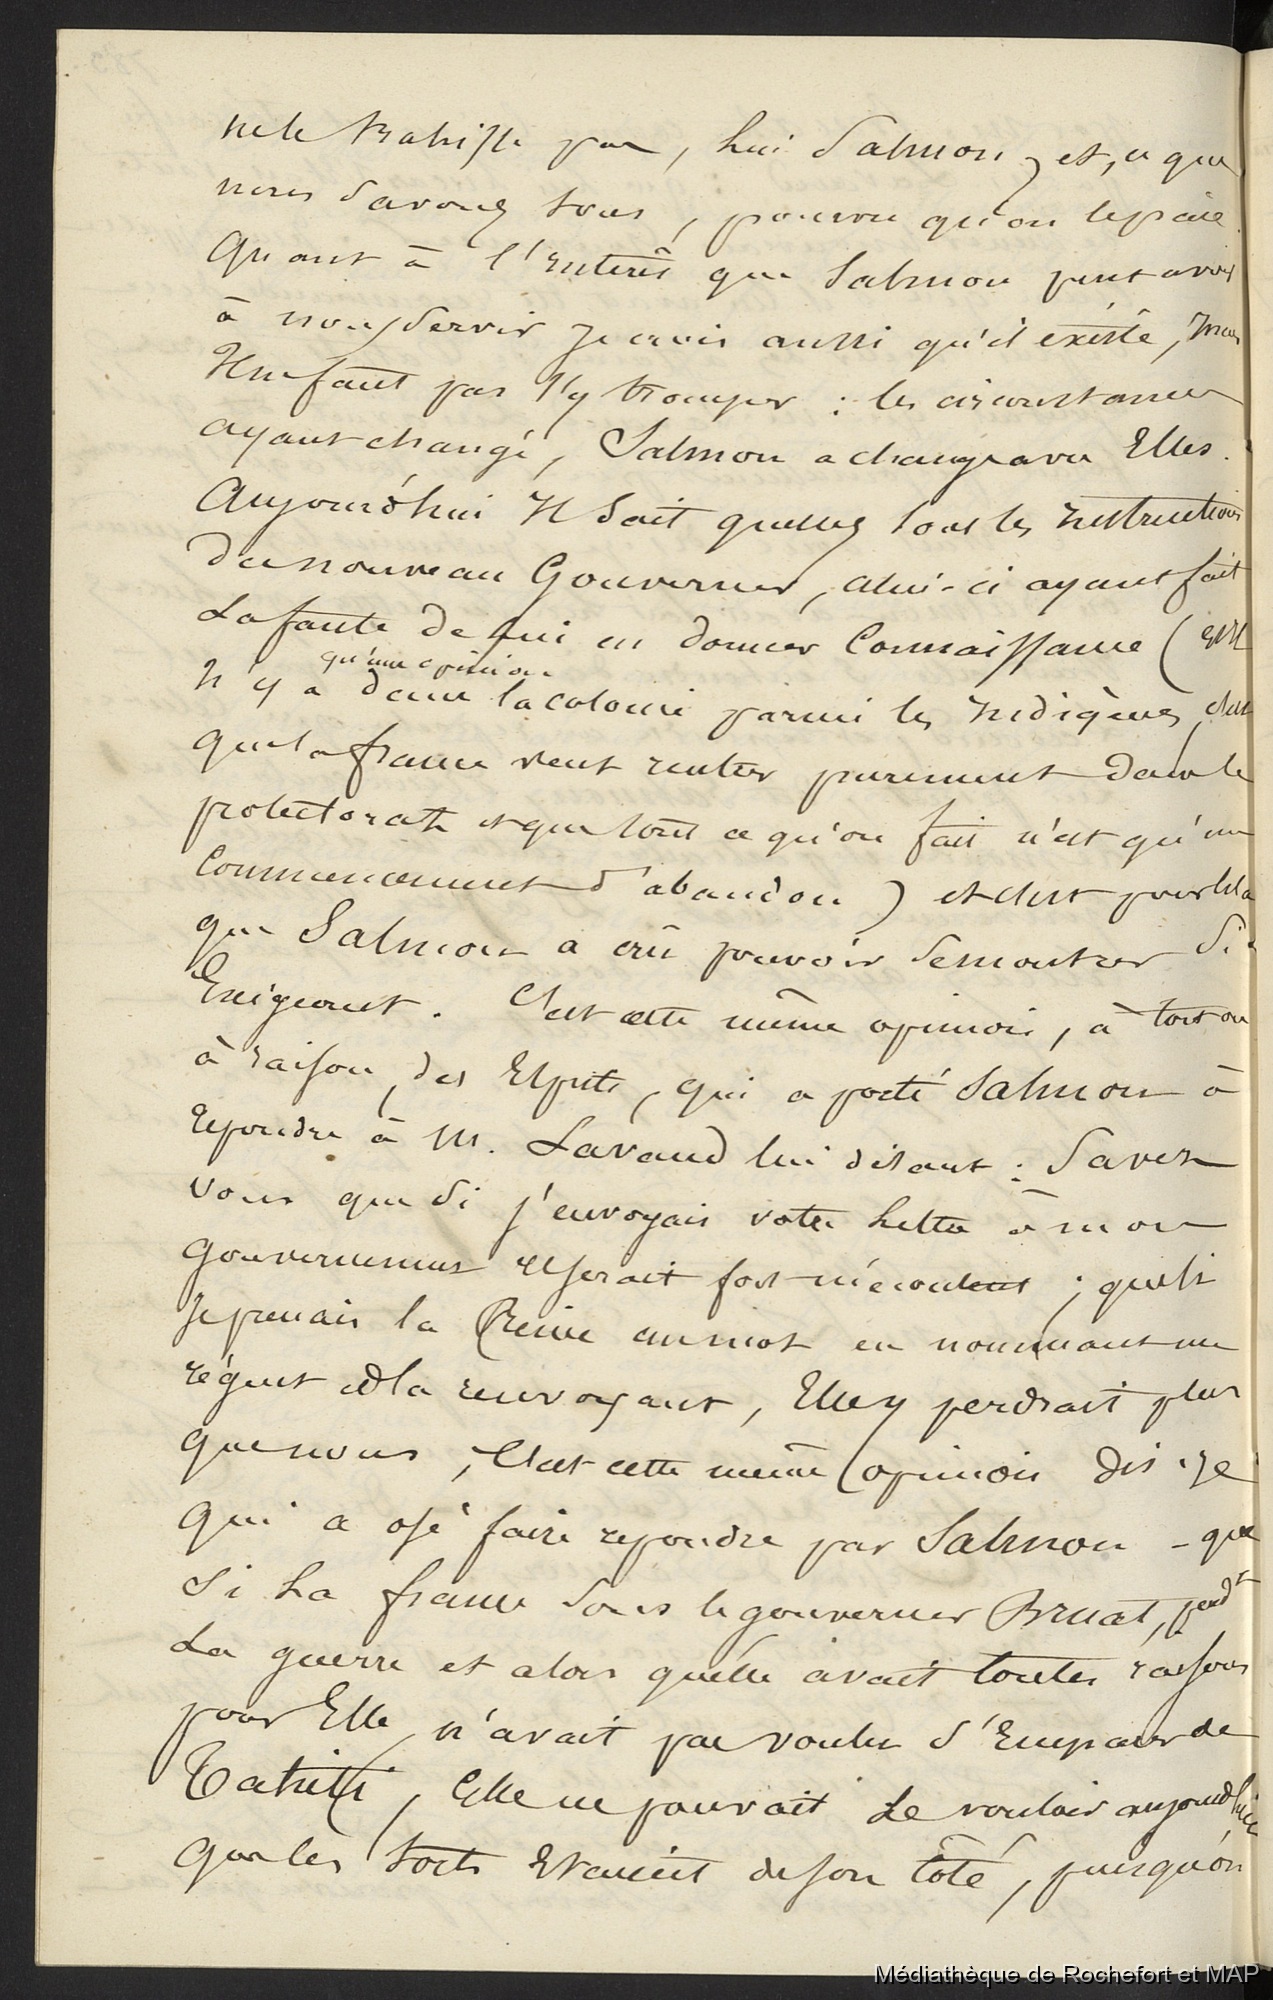 ne le trahisse pas, lui Salmon, et, ce que
nous savons tous, pourvu qu'on le paie
Quant à l'Intérêt que Salmon peut avoir
à nous servir je crois aussi qu'il existe, mais
Il ne faut pas s'y tromper : les circonstances
ayant changé, Salmon a changé avec Elles.
Aujourd'hui Il sait quelles sont les Instructions
du nouveau Gouverneur, celui-ci ayant fait
La faute de lui en donner Connaissance (et Il
n'y a qu'une opinion dans la colonie parmi les Indigènes, c'est
que la france veut rentrer purement dans le
protectorat et que tout ce qu'on fait n'est qu'un
Commencement d'abandon) et c'est pour cela
que Salmon a crû pouvoir se montrer si
Exigeant. C'est cette même opinion, à tort ou
à raison, des Esprits, qui a porté Salmon à
répondre à M. Lavaud lui disant : Savez
vous que si j'envoyais votre lettre à mon
gouvernement Il serait fort mécontent ; que si
je prenais la Reine au mot en nommant un
régent et la renvoyant, Elle y perdrait plus
que nous, C'est cette même opinion dis-je
qui a osé faire répondre par Salmon - que
si La france sous le gouverneur Bruat, pendt
La guerre et alors qu'elle avait toutes raisons
pour Elle, n'avait pas voulu s'Emparer de
Tahiti, Elle ne pouvait Le vouloir aujourd'hui
que les torts Etaient de son côté, puisqu'on
Médiathèque de Rochefort et MAP